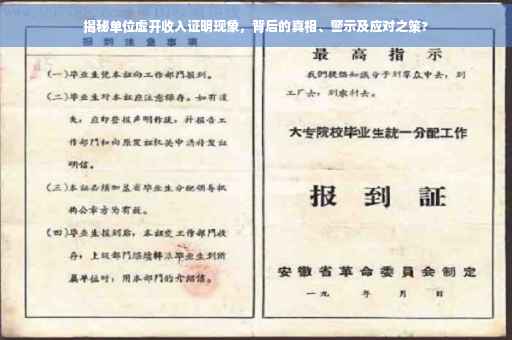 揭秘单位虚开收入证明现象，背后的真相、警示及应对之策？
报到注意事项
(一)毕业生凭本证向工作部门报到。
(二)毕业生对本证应注意保存。如有遗
失，应即登报声明作废，并报告工
作部门和向原发证机关申请补发证
明信。
(三)本证必须加盖省毕业生分配领导机
构公章方为有效。
(四)毕业生报到后，本证交工作部门收
存，上级部门
单位时，用本部门的介绍信。
最高指示
我们提倡知识分子到群众中去，到
工厂去，到农村去。
大专院校毕业生统一分配工作
报到証
安徽省革命委員会制定
一九 年 月 日